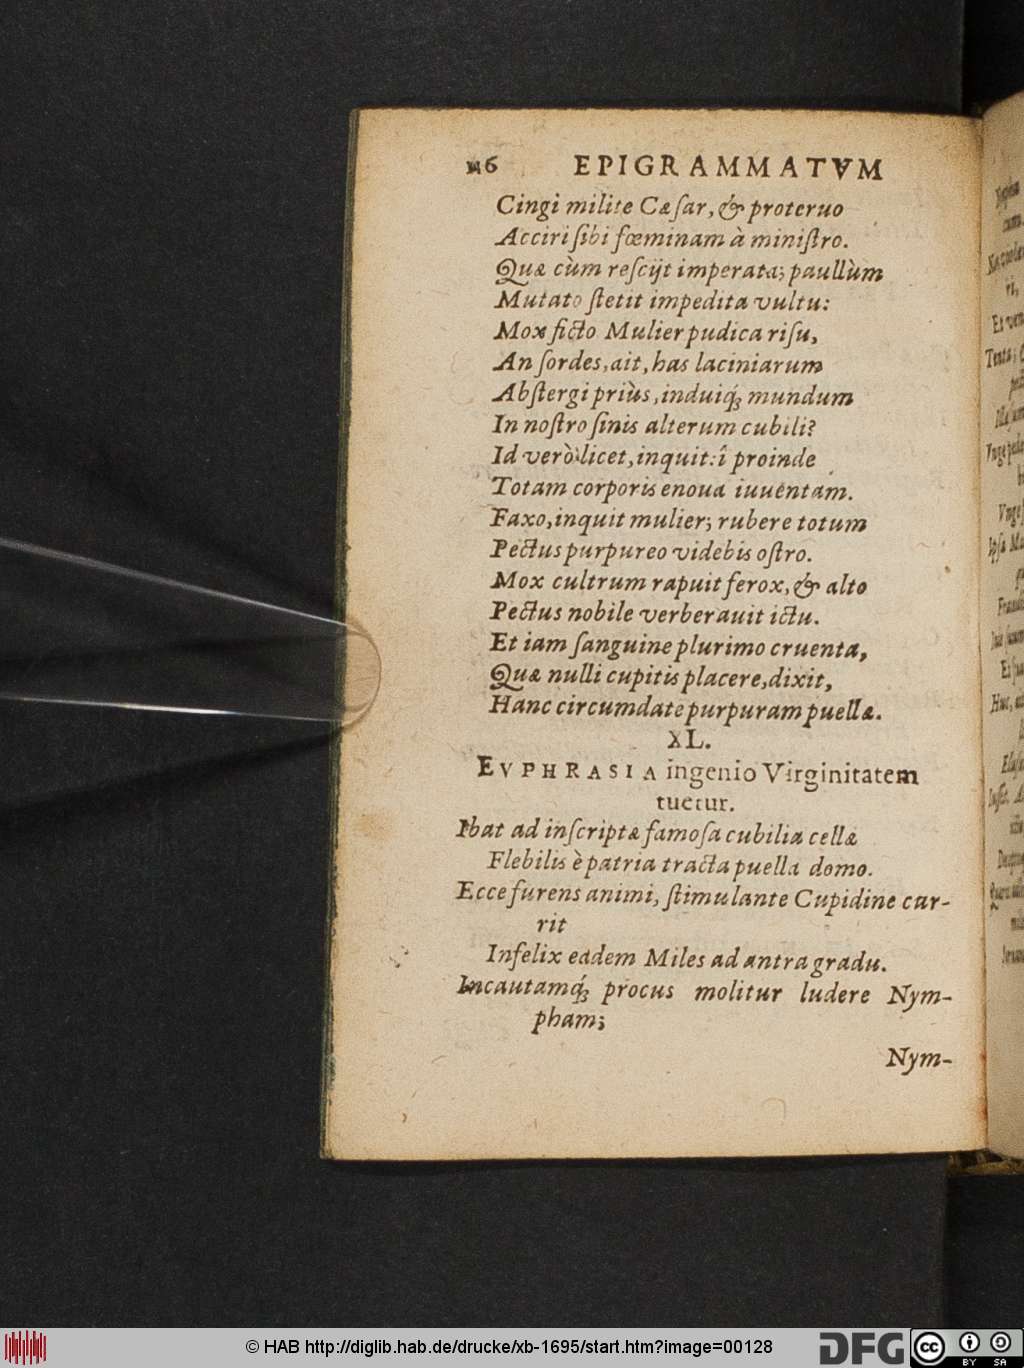 116 EPIGRAMMATVM
Cingi milite Cæſar, & proteruo
Acciri ſibi fœminam à miniſtro.
Quæ cùm reſcijt imperata; paullùm
Mutato ſtetit impedita vultu:
Mox ficto Mulier pudica riſu,
An ſordes, ait, has laciniarum
Abſtergi priùs, induiq́ꝫ mundum
In noſtro ſinis alterum cubili?
Id verò licet, inquit: î proinde
Totam corporis enoua iuuentam.
Faxo, inquit mulier; rubere totum
Pectus purpureo videbis oſtro.
Mox cultrum rapuit ferox, & alto
Pectus nobile verberauit ictu.
Et iam ſanguine plurimo cruenta,
Quæ nulli cupitis placere, dixit,
Hanc circumdate purpuram puellæ.
XL.
EVPHRASIA ingenio Virginitatem
tuetur.
Ibat ad inſcriptæ famoſa cubilia cellæ
Flebilis è patria tracta puella domo.
Ecce furens animi, ſtimulante Cupidine cur-
rit
Infelix eadem Miles ad antra gradu.
Incautamq́ꝫ procus molitur ludere Nym-
pham;
Nym-
© HAB http://diglib.hab.de/drucke/xb-1695/start.htm?image=00128
DFG
cc BY SA